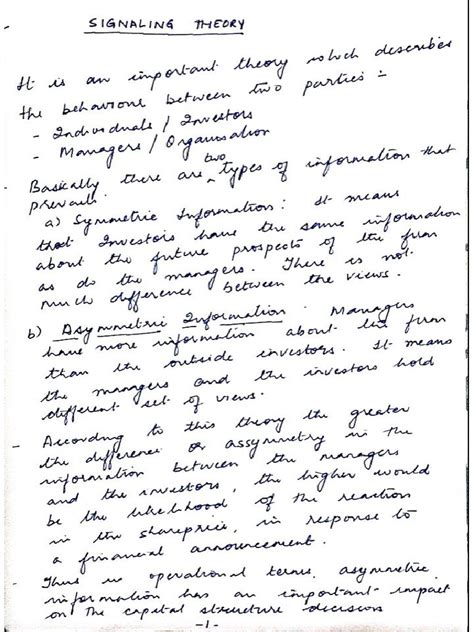 SIGNALING THEORY
It is an important theory which describes
the behaviour between two parties :-
- Individuals / Investors
- Managers / Organisation
two
Basically there are ^ types of information that
prevail.
a) Symmetric Information : It means
that Investors have the same information
about the future prospects of the firm
as do the managers. There is not
much difference between the views.
b) Asymmetric Information : Managers
have more information about the firm
than the outside investors. It means
the managers and the investors hold
different set of views.
- According to this theory the greater
the difference or assymmetry in the
information between the managers
and the investors, the higher would
be the likelihood of the reaction
in the shareprice, in response to
a financial announcement.
- Thus in operational terms, asymmetric
information has an important impact
on the capital structure decisions
-1-